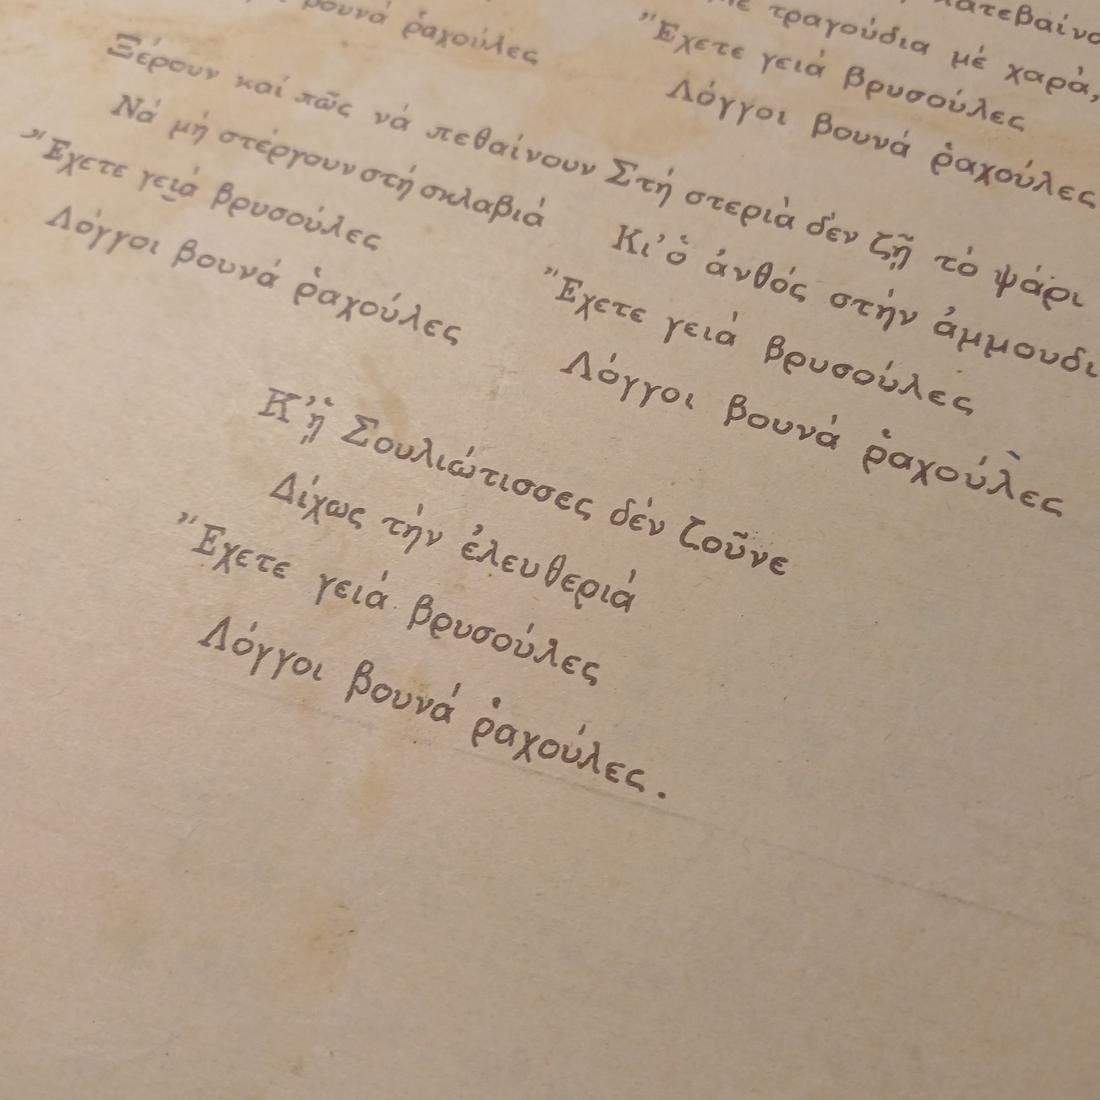 βουνά ῥαχούλες
Ξέρουν καί πῶς νά πεθαίνουν
Νά μή στέργουν στή σκλαβιά
Ἔχετε γειά βρυσούλες
Λόγγοι βουνά ῥαχούλες
τραγούδια μέ χαρά,
Ἔχετε γειά βρυσούλες
Λόγγοι βουνά ῥαχούλες
Στή στεριά δέν ζῇ τό ψάρι
Κι' ὁ ἀνθός στήν ἀμμουδι
Ἔχετε γειά βρυσούλες
Λόγγοι βουνά ῥαχούλες
Κ' ἡ Σουλιώτισσες δέν ζοῦνε
Δίχως τήν ἐλευθεριά
Ἔχετε γειά βρυσούλες
Λόγγοι βουνά ῥαχούλες.